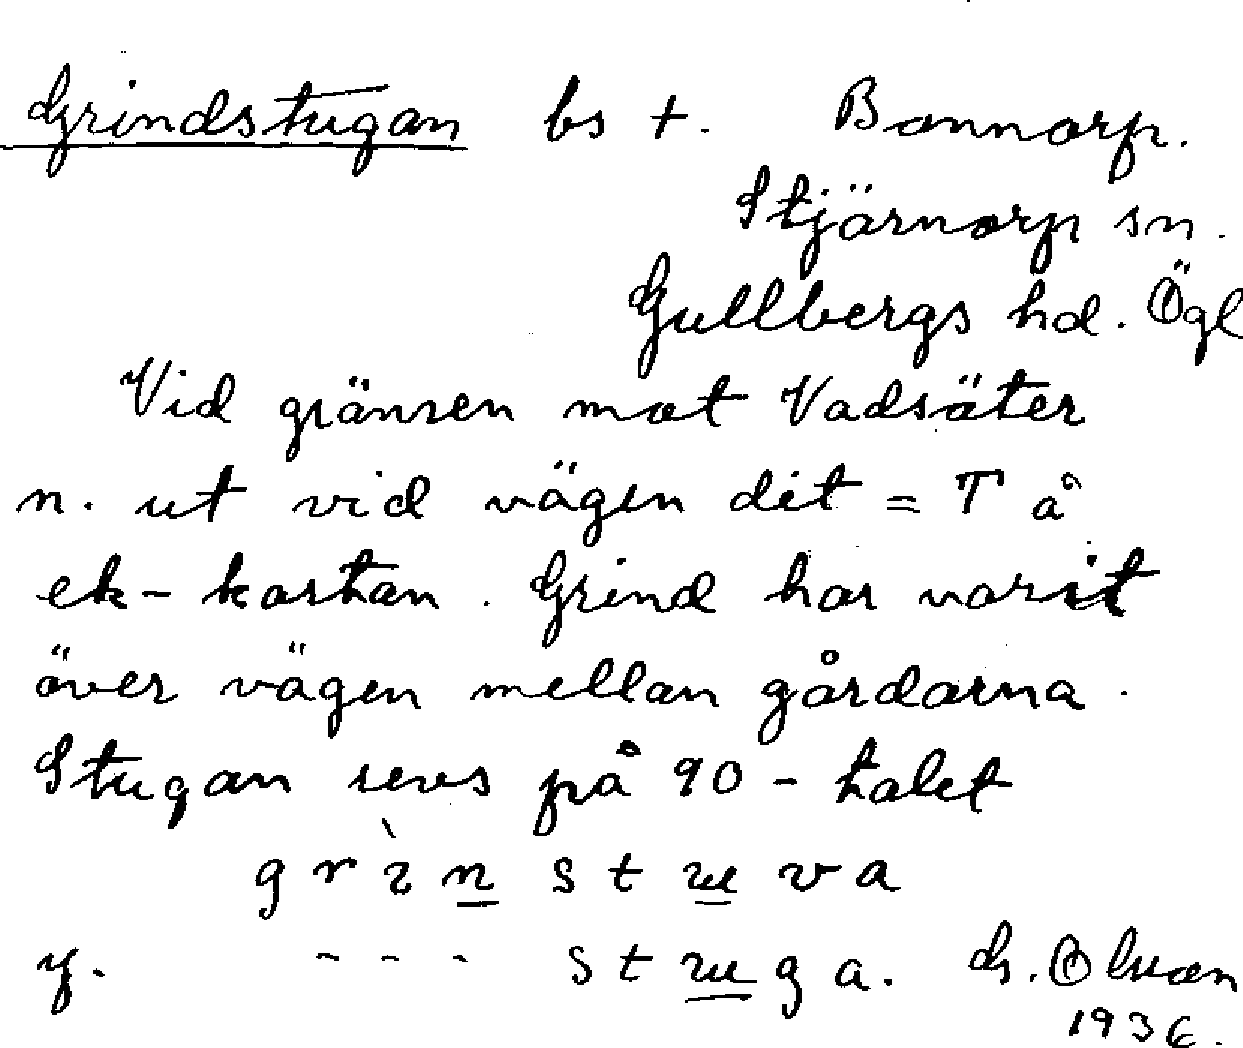 Grindstugan bs †. Bonnorp.
Stjärnorp sn.
Gullbergs hd. Ögl
Vid gränsen mot Vadsäter
n. ut vid vägen dit = T å
ek-kartan. Grind har varit
över vägen mellan gårdarna.
Stugan revs på 90-talet
grìn stuva
y. - - - stuga. G. Olsson
1936.